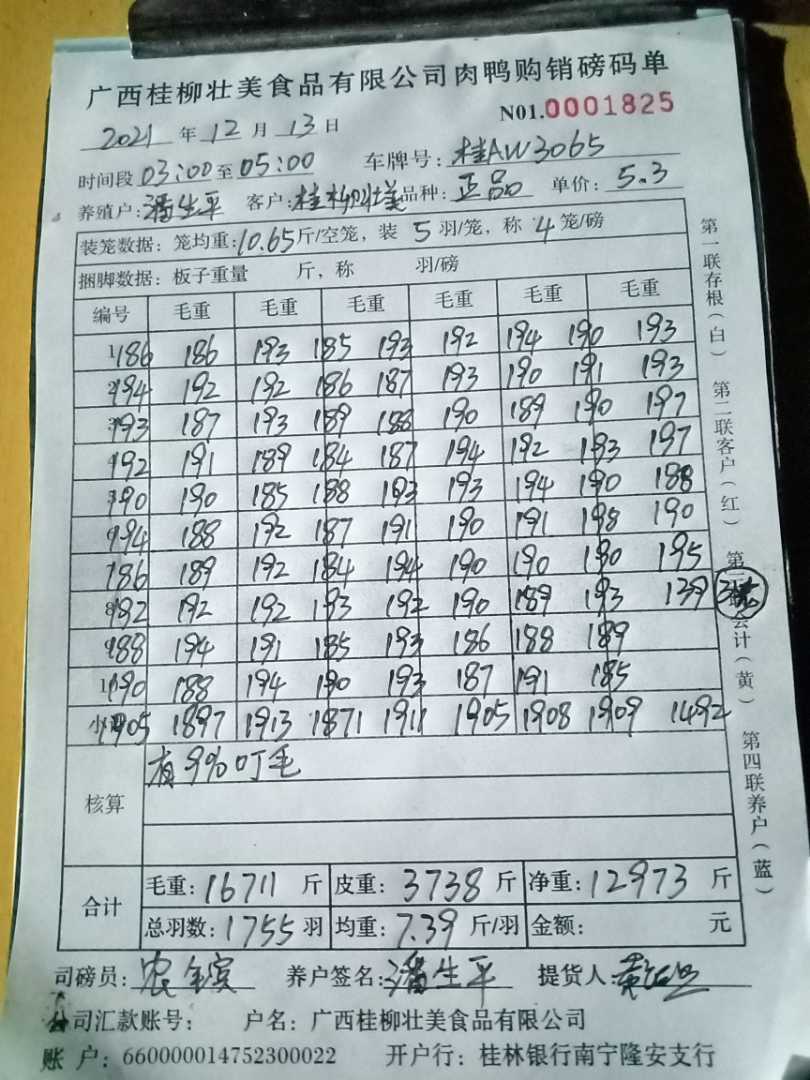 广西桂柳壮美食品有限公司肉鸭购销磅码单
N01.0001825
2021年12月13日
时间段03:00至05:00 车牌号:桂AW3065
养殖户:潘生平 客户:桂柳壮美 品种:正品 单价:5.3
装笼数据:笼均重:10.65斤/空笼,装5羽/笼,称4笼/磅
捆脚数据:板子重量 斤,称 羽/磅
编号 毛重 毛重 毛重 毛重 毛重 毛重
186 186 193 185 193 192 194 190 193
194 192 192 186 187 193 190 191 193
193 187 193 189 188 190 189 190 197
192 191 189 184 187 194 192 193 197
190 190 185 188 193 193 194 190 188
194 188 192 187 191 190 191 198 190
186 189 192 184 194 190 190 190 195
192 192 192 193 192 190 189 193 139
188 194 191 185 193 186 188 189
190 188 194 190 193 187 191 185
1905 1897 1913 1871 1911 1905 1908 1909 1492
核算 有9%叮毛
合计 毛重:16711斤 皮重:3738斤 净重:12973斤
总羽数:1755羽 均重:7.39斤/羽 金额: 元
司磅员: 养户签名:潘生平 提货人:
公司汇款账号: 户名:广西桂柳壮美食品有限公司
账 户:660000014752300022 开户行:桂林银行南宁隆安支行
第一联存根(白) 第二联客户(红) 会计(黄) 第四联养户(蓝)